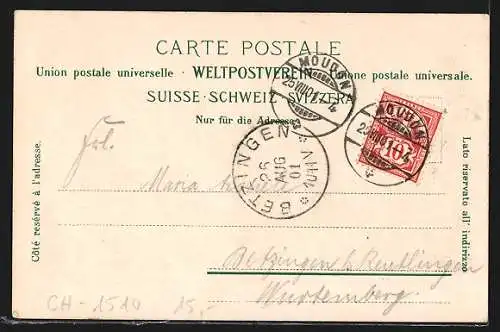 CARTE POSTALE
Union postale universelle · WELTPOSTVEREIN · Unione postale universale.
SUISSE · SCHWEIZ · SVIZZERA
Nur für die Adresse
Côté reservé à l'adresse.
Lato riservato all' indirizzo
MOUDON
25 VIII 01
MOUDON
BETZINGEN
26 AUG 01
Frl.
Maria
Betzingen b. Reutlingen
Wurtemberg
CH-1514 15,-